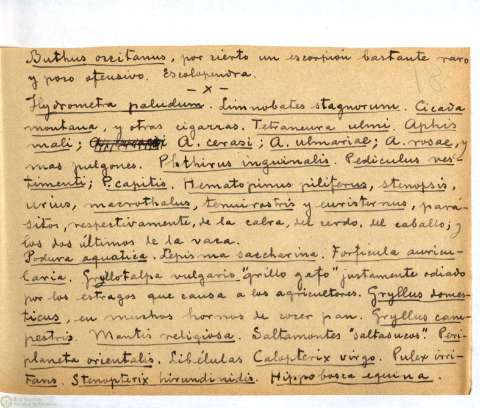 Buthus occitanus, por cierto un escorpión bastante raro
y poco ofensivo. Escolopendra.
— x —
Hydrometra paludum. Limnobates stagnorum. Cicada
montana, y otras cigarras. Tetraneura ulmi. Aphis
mali; A. cerasi; A. ulmariae; A. rosae, y
mas pulgones. Phthirus inguinalis. Pediculus ves-
timenti; P. capitis. Hematopinus piliferus, stenopsis,
urius, macrothalus, tenuirostris y euristernus, pará-
sitos, respectivamente, de la cabra, del cerdo, del caballo, y
los dos últimos de la vaca.
Podura aquatica. Lepisma saccharina. Forficula auricu-
laria. Gryllotalpa vulgaris "grillo gafo" justamente odiado
por los estragos que causa a los agricultores. Gryllus domes-
ticus, en muchos hornos de cocer pan. Gryllus cam-
pestris. Mantis religiosa. Saltamontes "saltasucos". Peri-
planeta orientalis. Libélulas Calopterix virgo. Pulex irri-
tans. Stenopterix hirundinidis. Hippobosca equina.
18